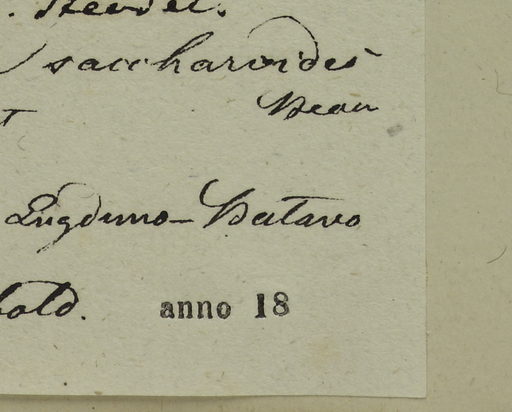 Steudel.
saccharoides
Beau
Lugduno-Batavo
bold. anno 18